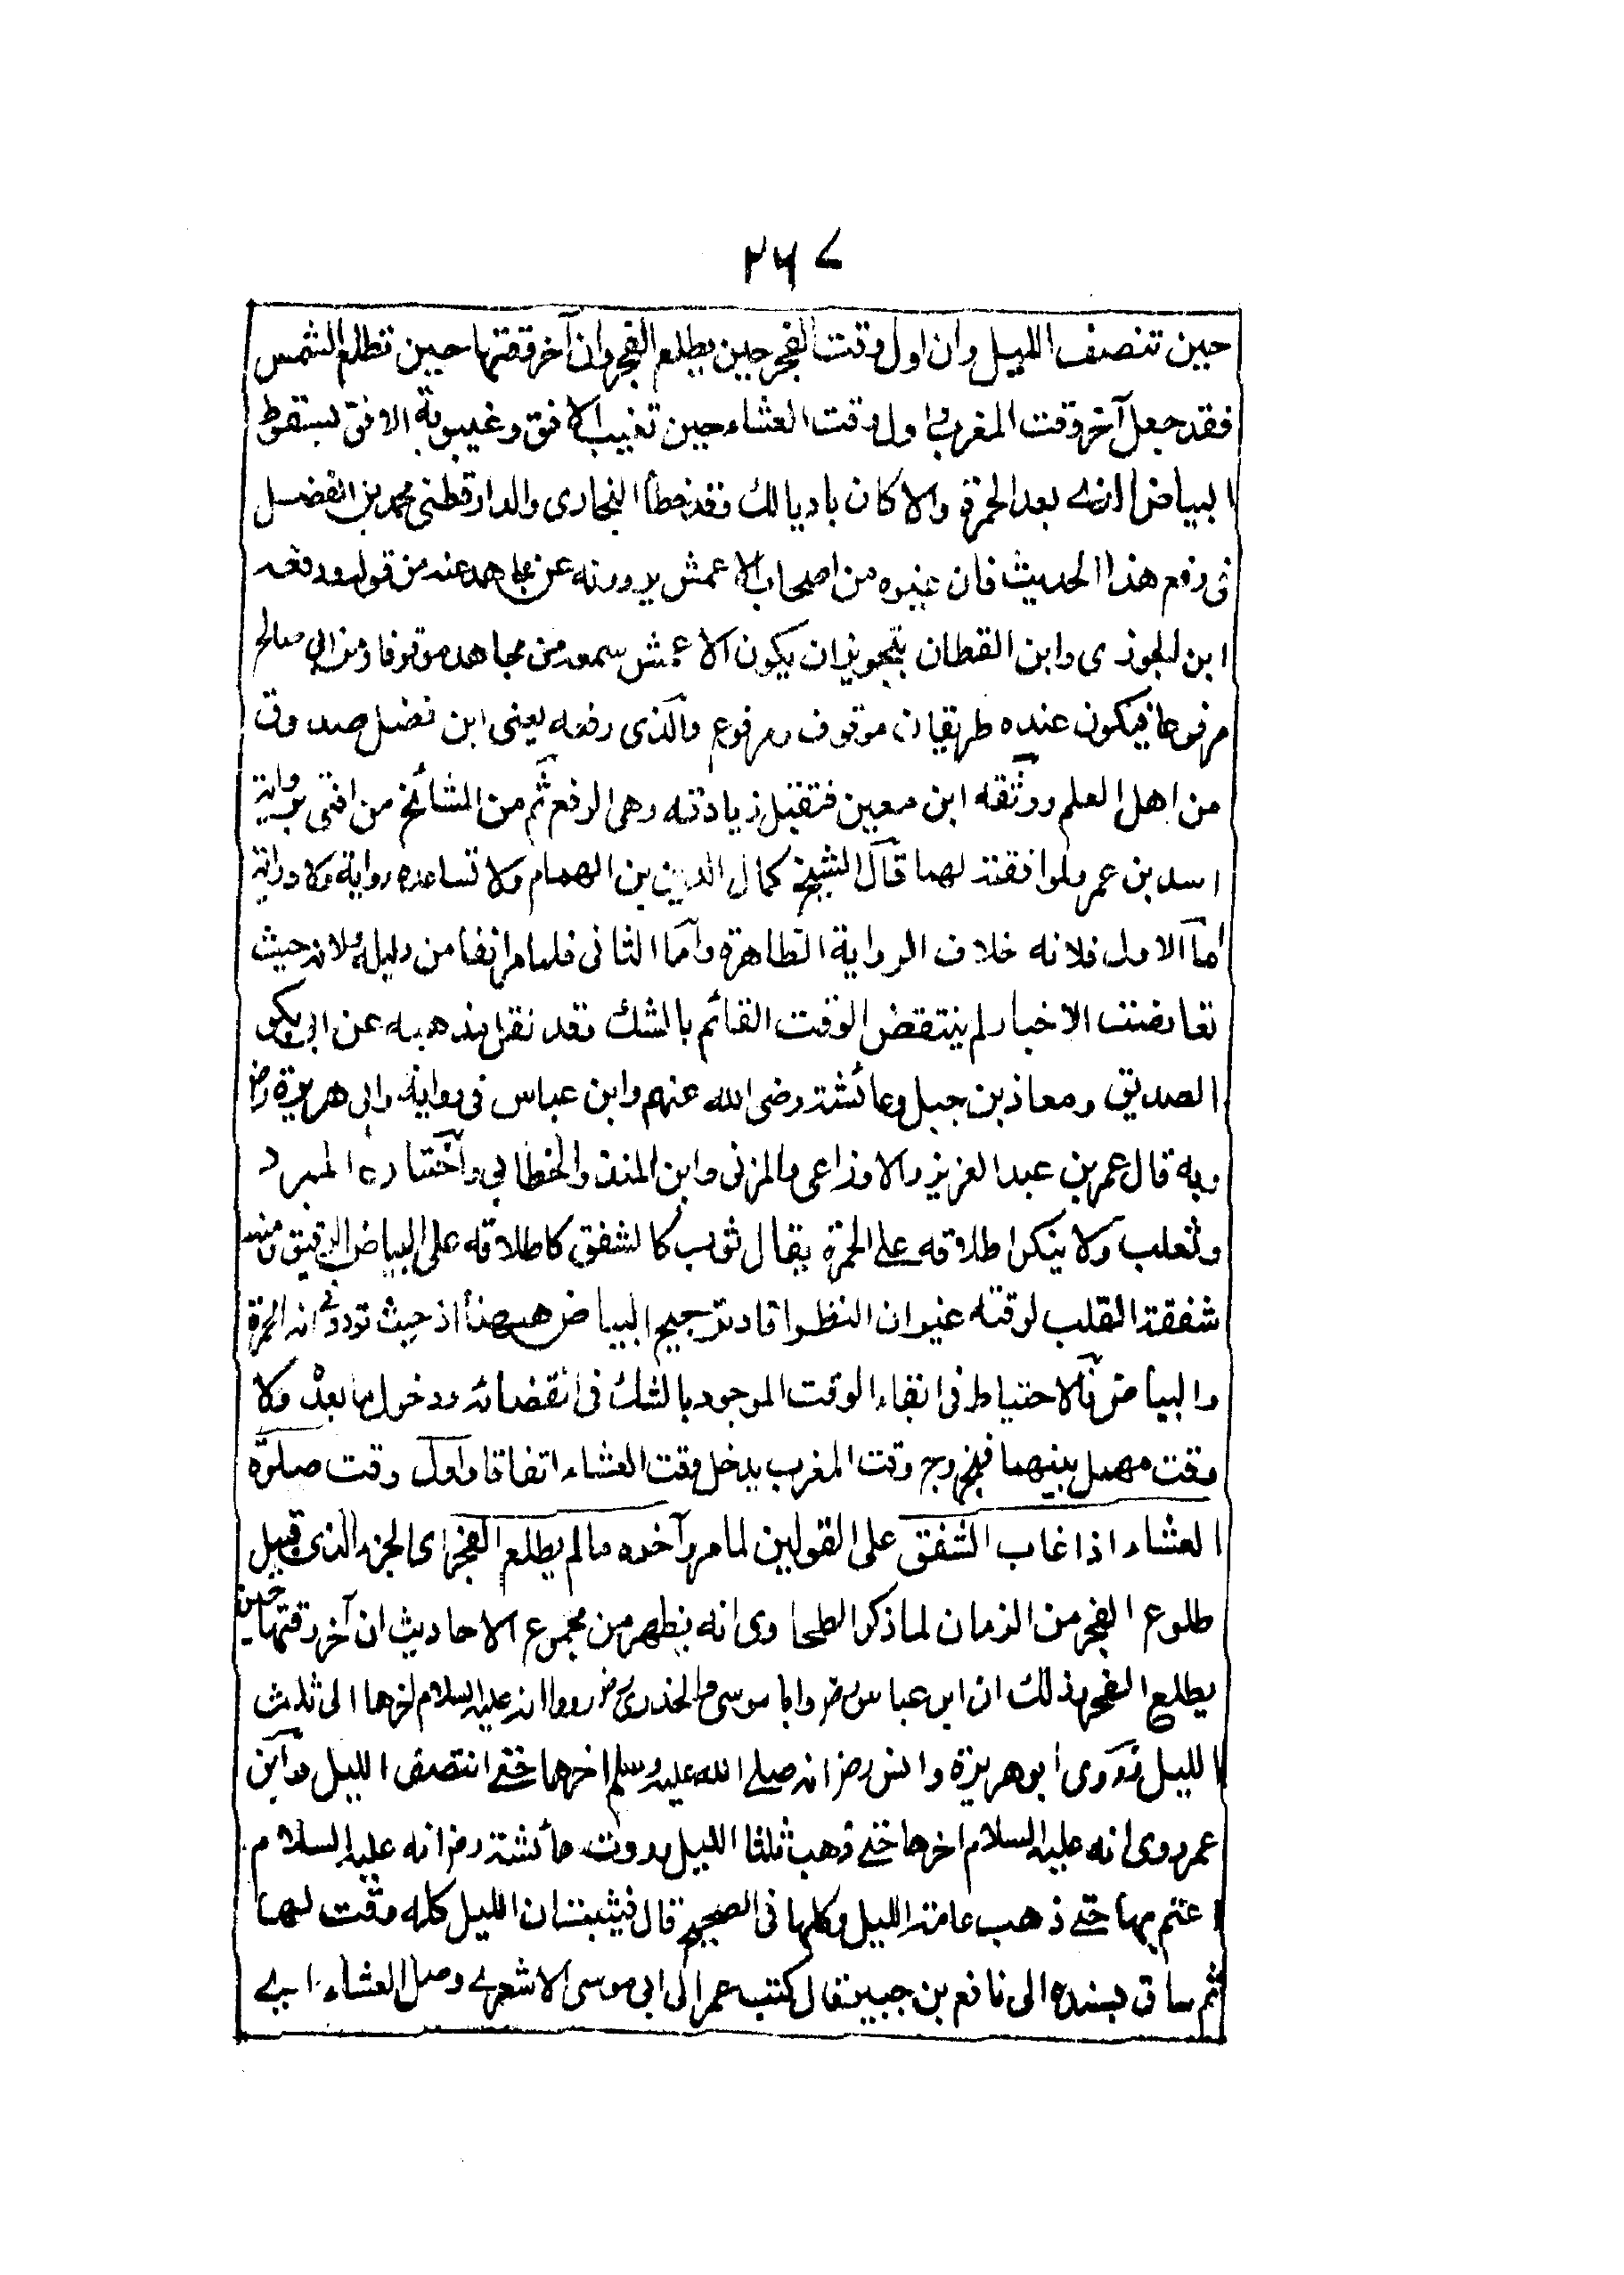 ٢٢٧
حين تنصف الليل وان اول وقت الفجر حين يطلع الفجر وان آخر وقتها حين تطلع الشمس
فقد جعل آخر وقت المغرب و اول وقت العشاء حين تغيب الافق وغيبوبة الافق بسقوط
البياض الذى بعد الحمرة والا كان باديا لك وقد خطأ البخارى والدارقطنى محمد بن الفضيل
فى رفع هذا الحديث فان غيره من اصحاب الاعمش يروونه عن مجاهد عنه من قوله ودفعه
ابن الجوزى وابن القطان بتجويز ان يكون الاعمش سمعه من مجاهد موقوفا ومن ابى صالح
مرفوعا فيكون عنده طريقان موقوف ومرفوع والذى رفعه يعنى ابن فضيل صدوق
من اهل العلم ووثقه ابن معين فتقبل زيادته وهى الرفع ثم من المشائخ من افتى برواية
اسد بن عمر ولموافقته لهما قال الشيخ كمال الدين بن الهمام ولا تساعده رواية ولا دراية
اما الاول فلانه خلاف الرواية الظاهرة واما الثانى فلما مر انفا من دليله ولانه حيث
تعارضت الاخبار لم ينتقض الوقت القائم بالشك وقد نقل مذهبه عن ابى بكر
الصديق ومعاذ بن جبل وعائشة رضى الله عنهم وابن عباس فى رواية وابى هريرة رض
وبه قال عمر بن عبد العزيز والاوزاعى والمزنى وابن المنذر والخطابى واختاره المبرد
وثعلب ولا ينكر اطلاقه على الحمرة يقال ثوب كالشفق كاطلاقه على البياض الرقيق ومنه
شفقة القلب لرقته غير ان النظر افاد ترجيح البياض ههنا اذ حيث تردد فى انه الحمرة
والبياض فالاحتياط فى ابقاء الوقت الموجود بالشك فى انقضائه ودخول ما بعده ولا
وقت مهمل بينهما فبخروج وقت المغرب يدخل وقت العشاء اتفاقا واول وقت صلوة
العشاء اذا غاب الشفق على القولين لما مر وآخره ما لم يطلع الفجر اى الجزء الذى قبيل
طلوع الفجر من الزمان لما ذكر الطحاوى انه يظهر من مجموع الاحاديث ان آخر وقتها حين
يطلع الفجر وذلك ان ابن عباس رض وابا موسى والخدرى رض رووا انه عليه السلام اخرها الى ثلث
الليل وروى ابو هريرة وانس رض انه صلى الله عليه وسلم اخرها حتى انتصف الليل وابن
عمر روى انه عليه السلام اخرها حتى ذهب ثلثا الليل وروت عائشة رض انه عليه السلام
اعتم بها حتى ذهب عامة الليل وكلها فى الصحيح قال فيثبت ان الليل كله وقت لها
ثم ساق بسنده الى نافع بن جبير قال كتب عمر الى ابى موسى الاشعرى وصل العشاء اى